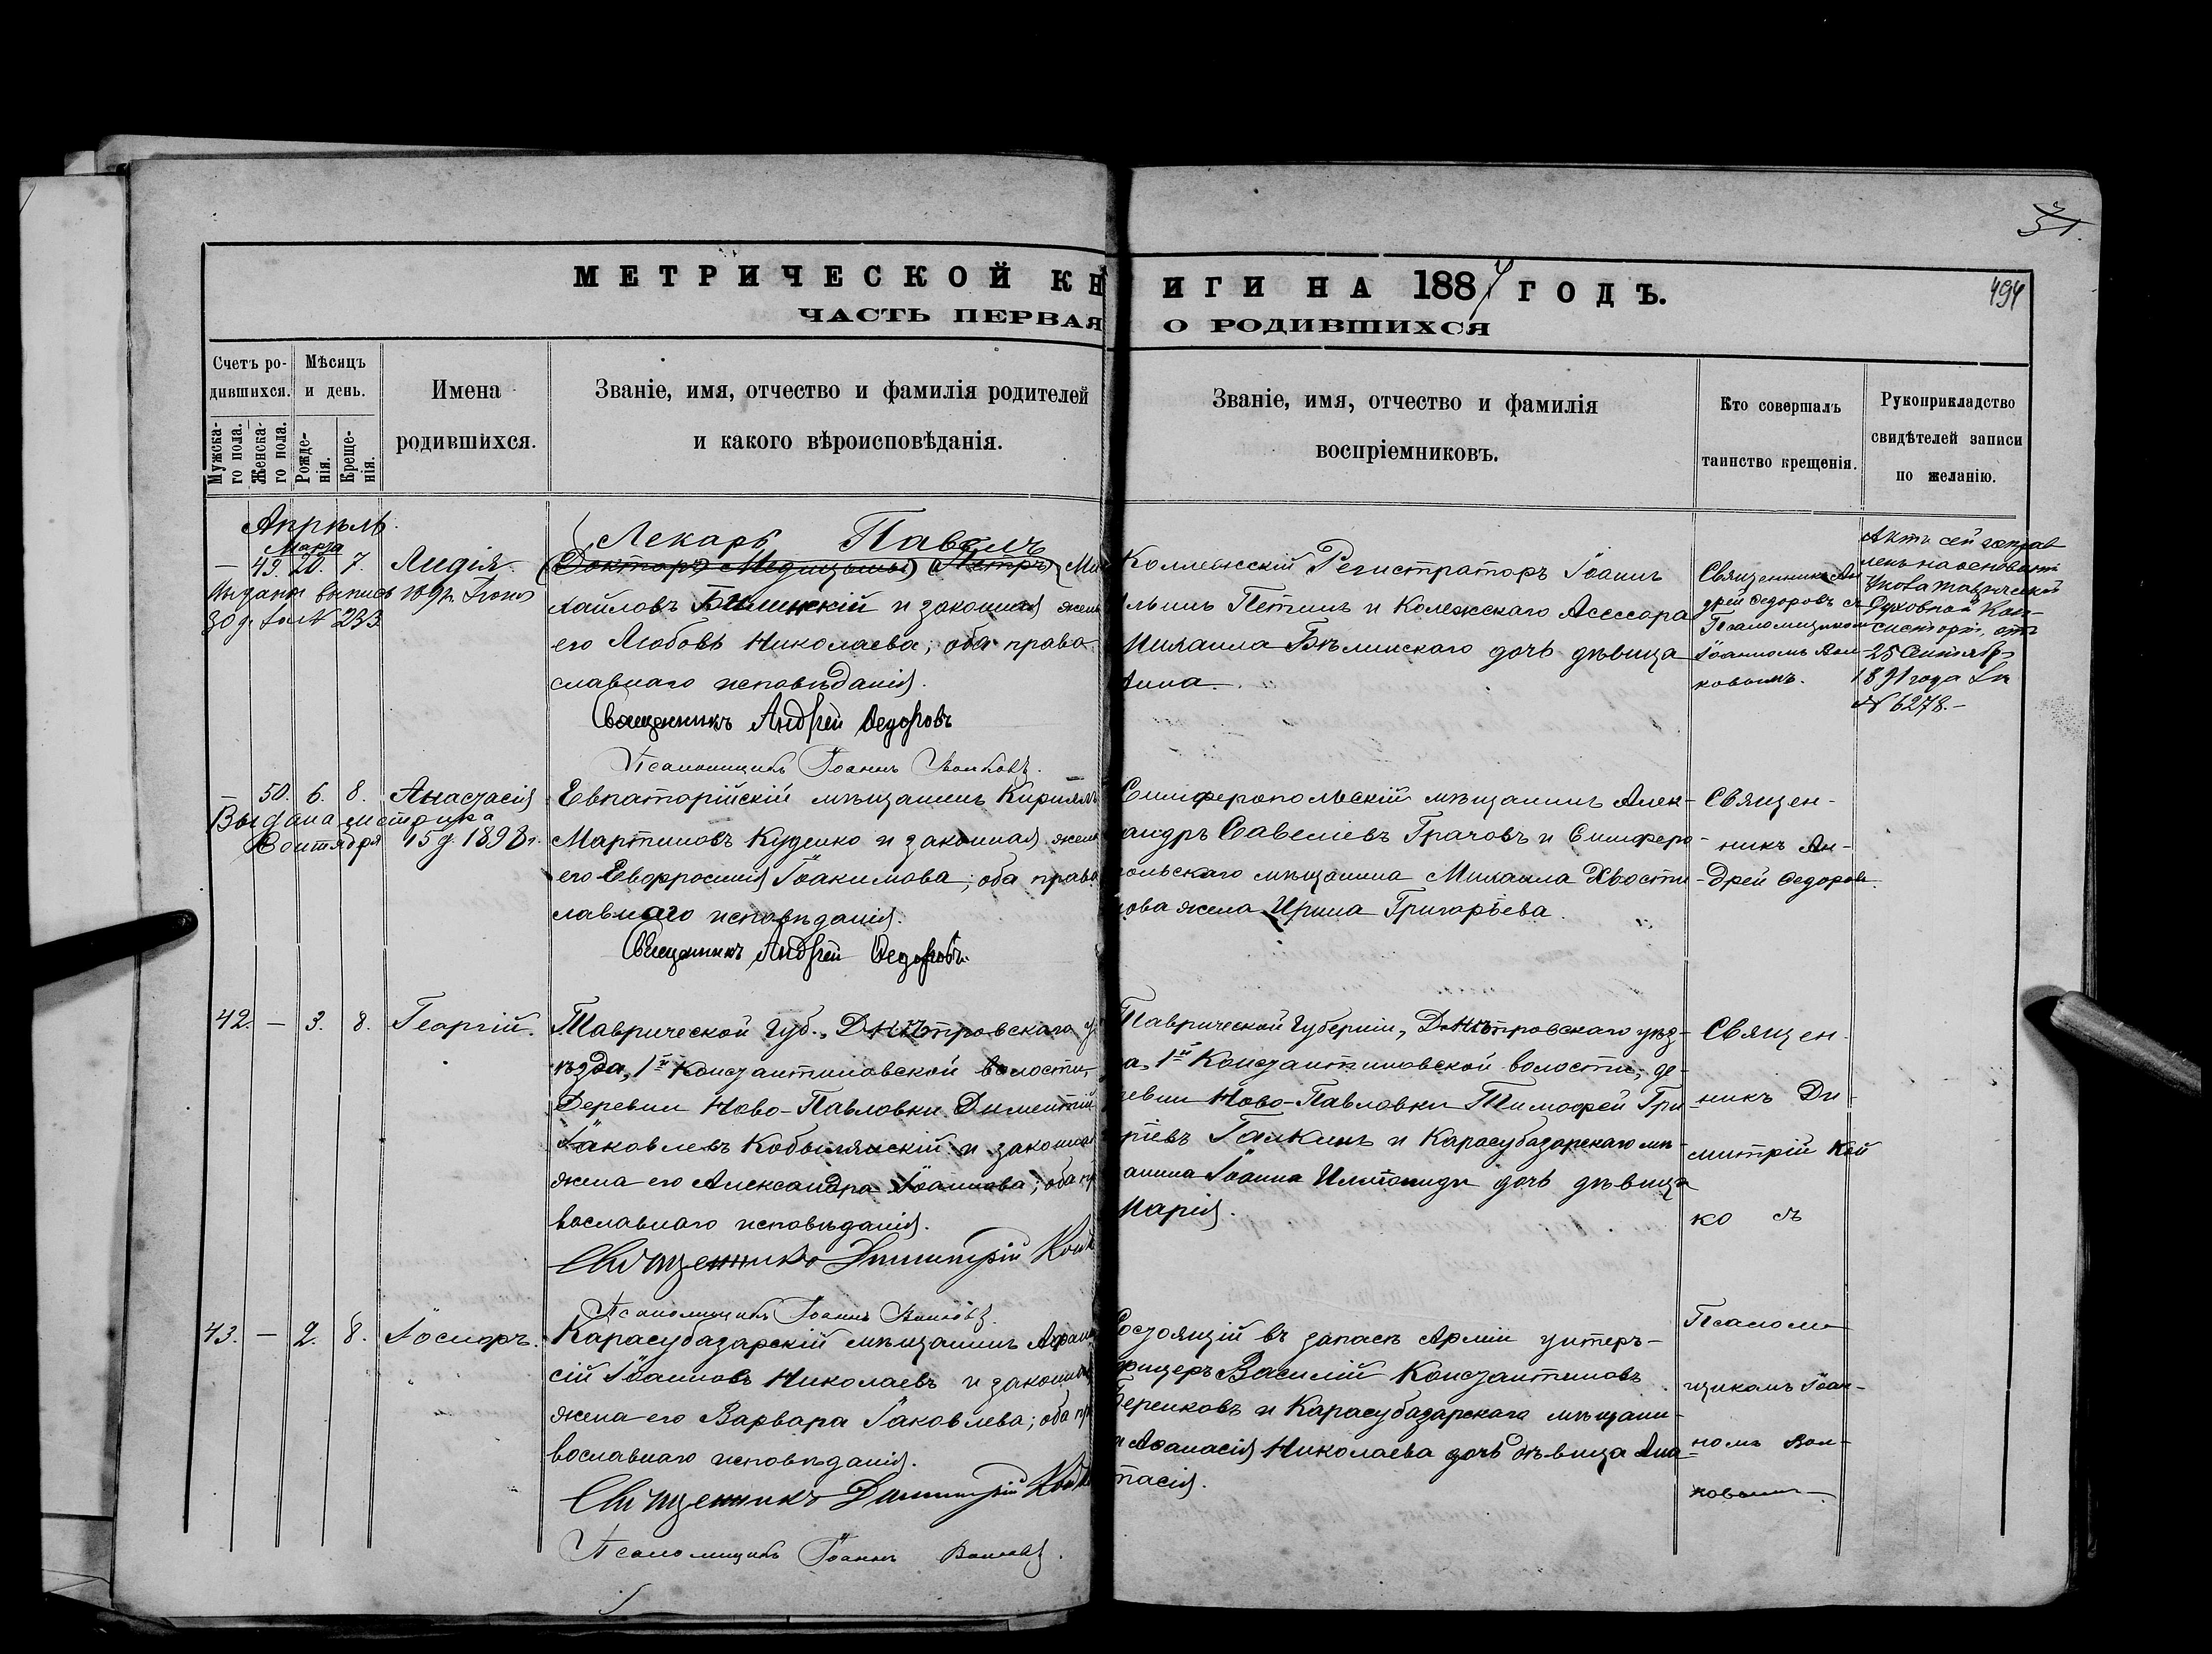 31.
494
МЕТРИЧЕСКОЙ КНИГИ НА 1887 ГОДЪ.
ЧАСТЬ ПЕРВАЯ О РОДИВШИХСЯ
Счетъ ро-
дившихся.
Мужска-
го пола.
Женска-
го пола.
Мѣсяцъ
и день.
Рожде-
нія.
Креще-
нія.
Имена
родившихся.
Званіе, имя, отчество и фамилія родителей
и какого вѣроисповѣданія.
Званіе, имя, отчество и фамилія
воспріемниковъ.
Кто совершалъ
таинство крещенія.
Рукоприкладство
свидѣтелей записи
по желанію.
Апрѣль.
Марта
— 49. 20. 7. Лидія.
30 д. за № 233
Лекарь Павелъ
(Докторъ Медицины) (Петръ) Ми
хайловъ Бѣлинскій и законная жена
его Любовь Николаева; оба право
славнаго исповѣданія.
Священникъ Андрей Ѳедоровъ
Псаломщикъ Іоаннъ Волковъ.
Коллежскій Регистраторъ Іоаннъ
Ильинъ Петинъ и Колежскаго Асессора
Михаила Бѣлинскаго дочь дѣвица
Анна.
Священникъ Ан
дрей Ѳедоровъ съ
Псаломщикомъ
Іоанномъ Вол
ковымъ.
Актъ сей исправ
ленъ на основаніи
Указа Таврической
Духовной Кон-
систоріи, отъ
25 Сентября
1891 года за
№ 6278.—
50. 6. 8. Анастасія
Выдана метрика
Сентября 15 д. 1898 г.
Евпаторійскій мѣщанинъ Кириллъ
Мартиновъ Куценко и законная жена
его Евфросинія Іоакимова; оба право
лавнаго исповѣданія.
Священникъ Андрей Ѳедоровъ.
Симферопольскій мѣщанинъ Алек-
андръ Савеліевъ Грачовъ и Симферо-
ольскаго мѣщанина Михаила Хвости-
ова жена Ирина Григорьева.
Священ-
никъ Ан-
дрей Ѳедоровъ.
42. — 3. 8. Георгій.
Таврической Губ., Днѣпровскаго у
ѣзда, 1й Константиновской волости,
Деревни Ново-Павловки Диментій
Іаковлевъ Кобылянскій и законная
жена его Александра Іоаннова; оба пр
вославнаго исповѣданія.
Священникъ Димитрій Койко
Псаломщикъ Іоаннъ Волковъ.
Таврической Губерніи, Днѣпровскаго уѣз-
а, 1й Константиновской волости, де-
ревни Ново-Павловки Тимофей Гри
ріевъ Галкинъ и Карасубазарскаго мѣ-
анина Іоанна дочь дѣвица
Марія.
Священ-
никъ Ди-
митрій Кой
ко съ
43. — 2. 8. Іосифъ.
Карасубазарскій мѣщанинъ Афана
сій Іоанновъ Николаевъ и законная
жена его Варвара Іаковлева; оба пр
вославнаго исповѣданія.
Священникъ Димитрій Койко
Псаломщикъ Іоаннъ Волковъ.
Состоящій въ запасѣ Арміи унтеръ-
фицеръ Василій Константиновъ
Береиковъ и Карасубазарскаго мѣщани-
а Аѳанасія Николаева дочь дѣвица Ана-
тасія.
Псалом-
щикомъ Іоан-
номъ Вол-
ковымъ.